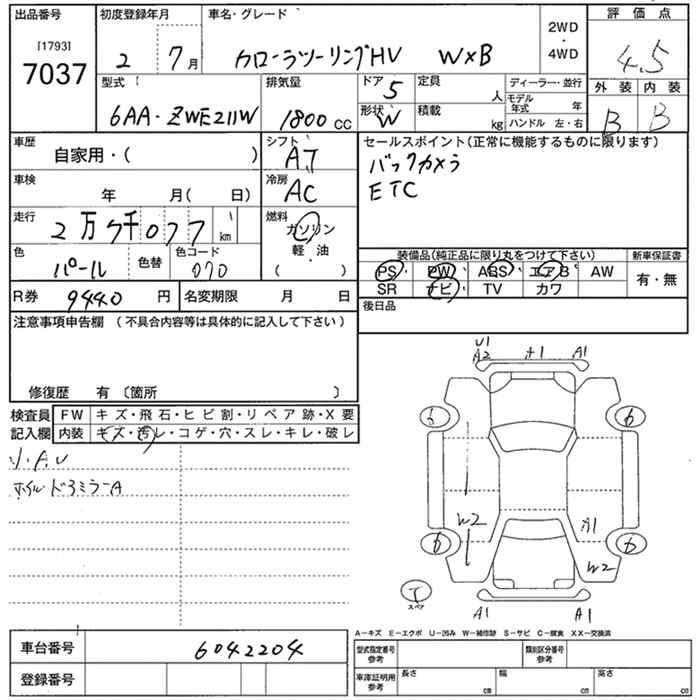 出品番号 初度登録年月 車名・グレード 評価点
[1793]
7037
2 7月 カローラツーリングHV W×B 2WD・4WD 4.5
型式 排気量 ドア 5 定員 人 ディーラー・並行 外装 内装
6AA-ZWE211W 1800cc 形状 W 積載 kg モデル年式 年 B B
ハンドル 左・右
車歴 シフト セールスポイント(正常に機能するものに限ります)
自家用・( ) AT バックカメラ
車検 冷房 ETC
年 月( 日) AC
走行 燃料
2万7千077km ガソリン
軽・油
( )
色 色替 色コード 装備品(純正品に限り丸をつけて下さい) 新車保証書
パール 070 PS PW ABS エアB AW 有・無
SR ナビ TV カワ
R券 9440円 名変期限 月 日 後日品
注意事項申告欄 (不具合内容等は具体的に記入して下さい)
修復歴 有〔箇所 〕
検査員 FW キズ・飛石・ヒビ割・リペア跡・X要
記入欄 内装 キズ・汚レ・コゲ・穴・スレ・キレ・破レ
小・A,U
ホイルドアミラーA
U1
A2 A1
6 6
W2
W2
6 6
スペア
A1 A1
A-キズ E-エクボ U-凹み W-補修跡 S-サビ C-腐食 XX-交換済
車台番号 6042204 型式指定番号 参考 類別区分番号 参考
登録番号 車庫証明用 参考 長さ cm 幅 cm 高さ cm